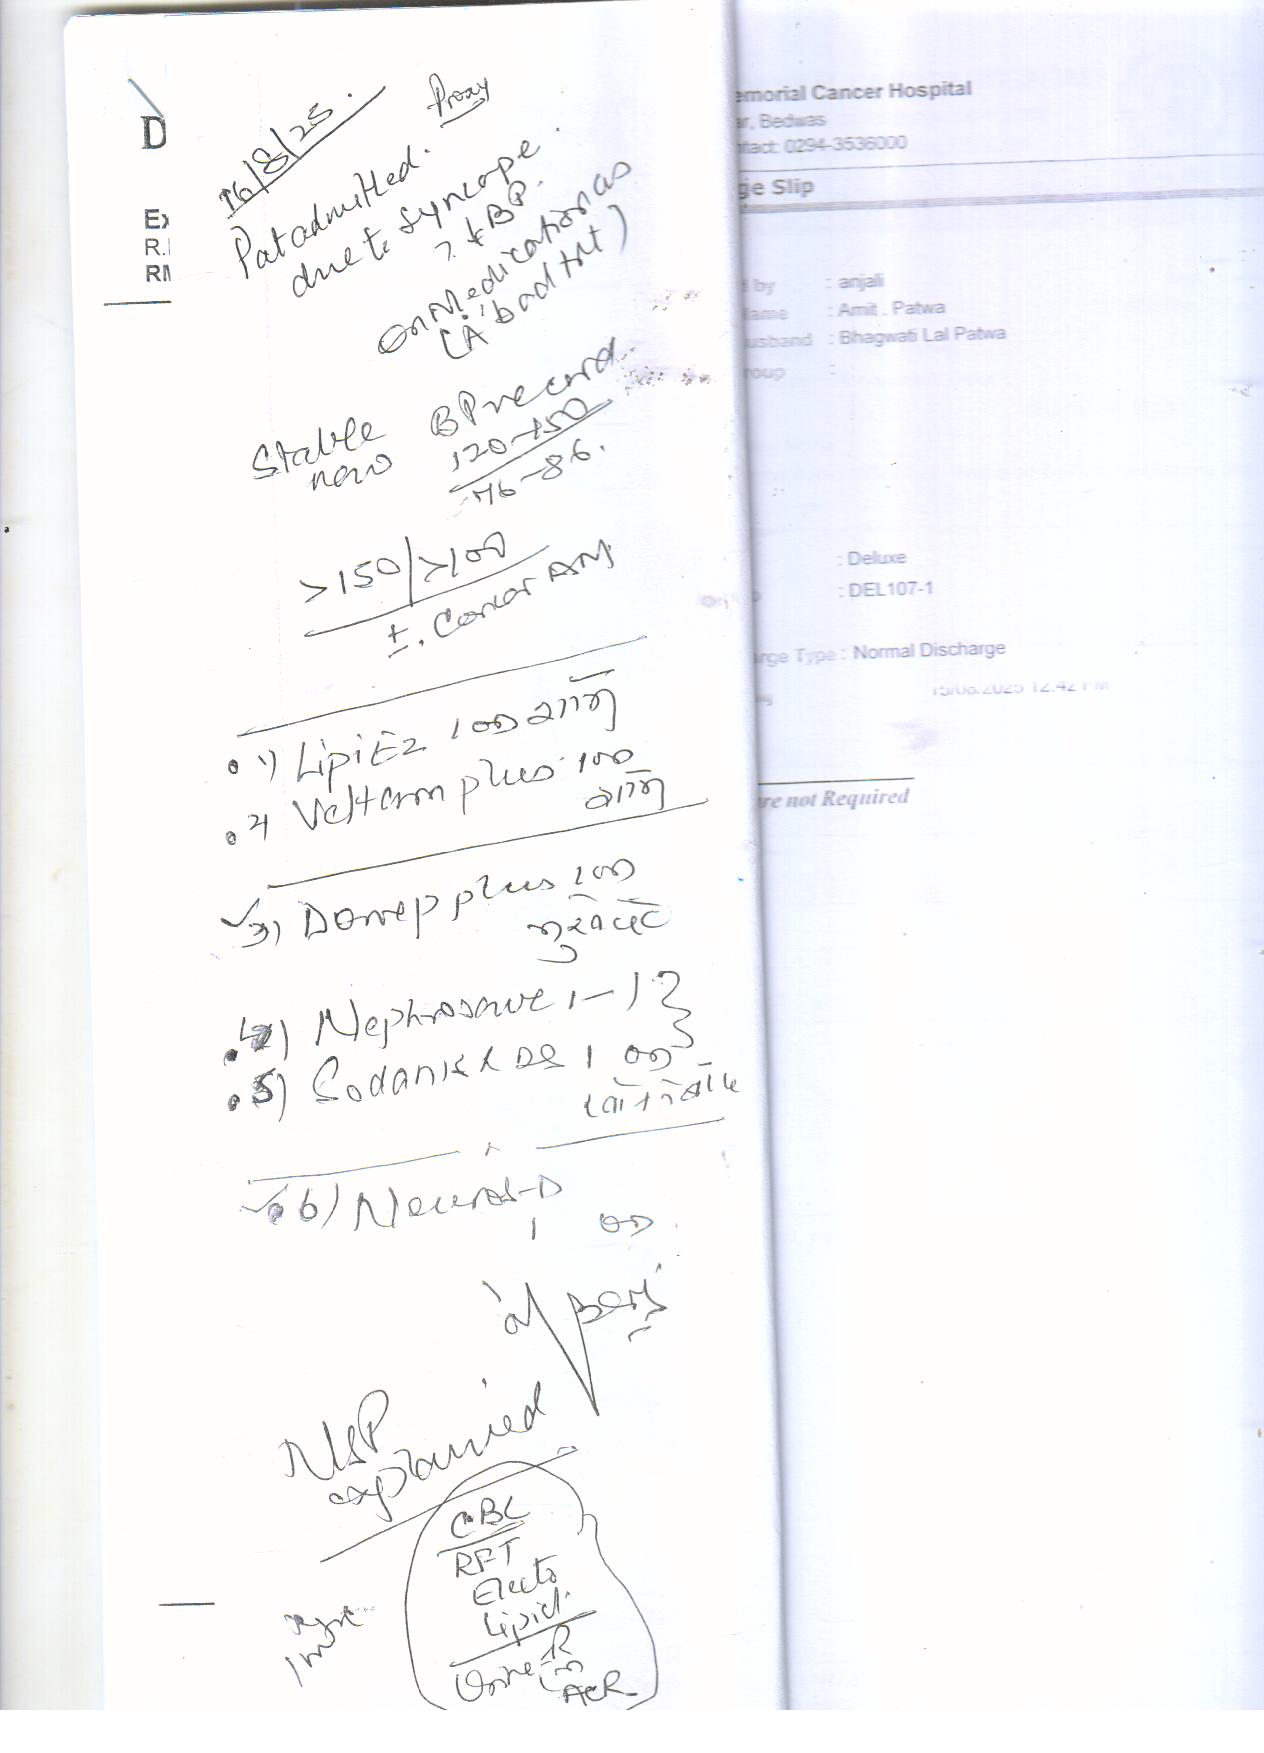 D
Ex
R.
RM
16/8/25.
Proxy
Pat admitted.
due to syncope.
? ↓ BP.
on Medication as
(A'bad trt)
Stable now
BP record.
120-150
76-86.
>150/>100
±. Concor AM
1) LipiEz 1 OD
2) Veltam plus 1 OD
3) Domep plus 1 OD
4) Nephrosave 1-1
5) Sodanik DS 1 OD
6) Neuros-D
1 OD
NSP
explained
CBC
RFT
Electo
Lipid.
Urine-R
ACR
emorial Cancer Hospital
ar, Bedwas
ntact: 0294-3536000
ge Slip
d by : anjali
Name : Amit . Patwa
usband : Bhagwati Lal Patwa
roup :
: Deluxe
: DEL107-1
arge Type : Normal Discharge
12:42 PM
re not Required